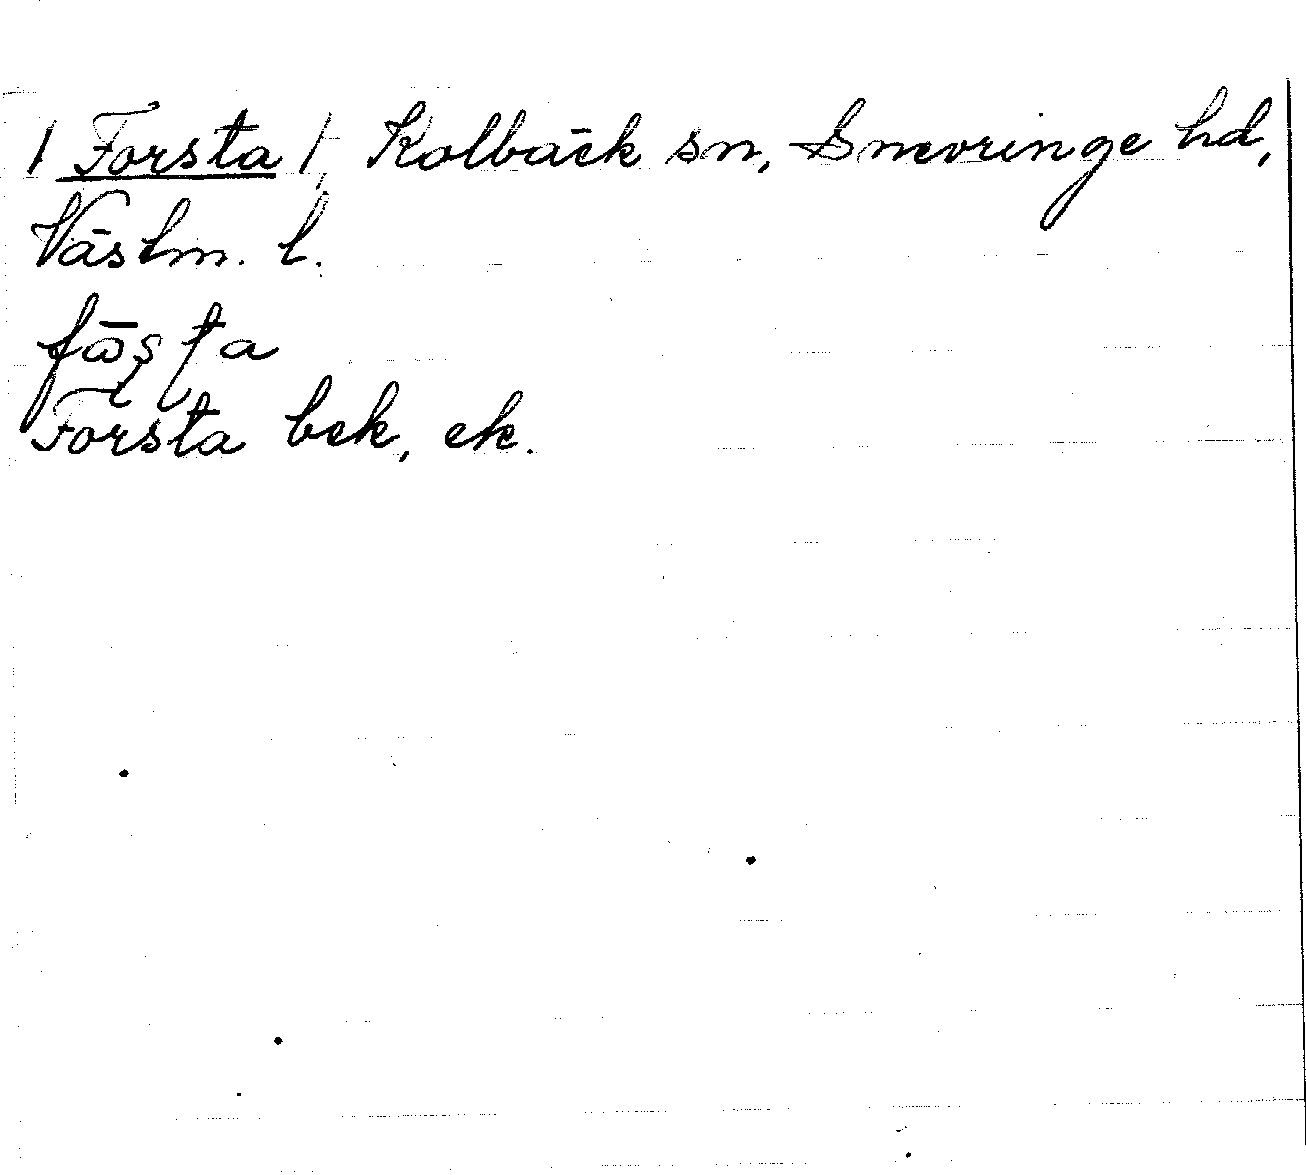 / Forsta /, Kolbäck sn, Snevringe hd,
Västm. l.
fōʂʈa
Forsta bek, ek.